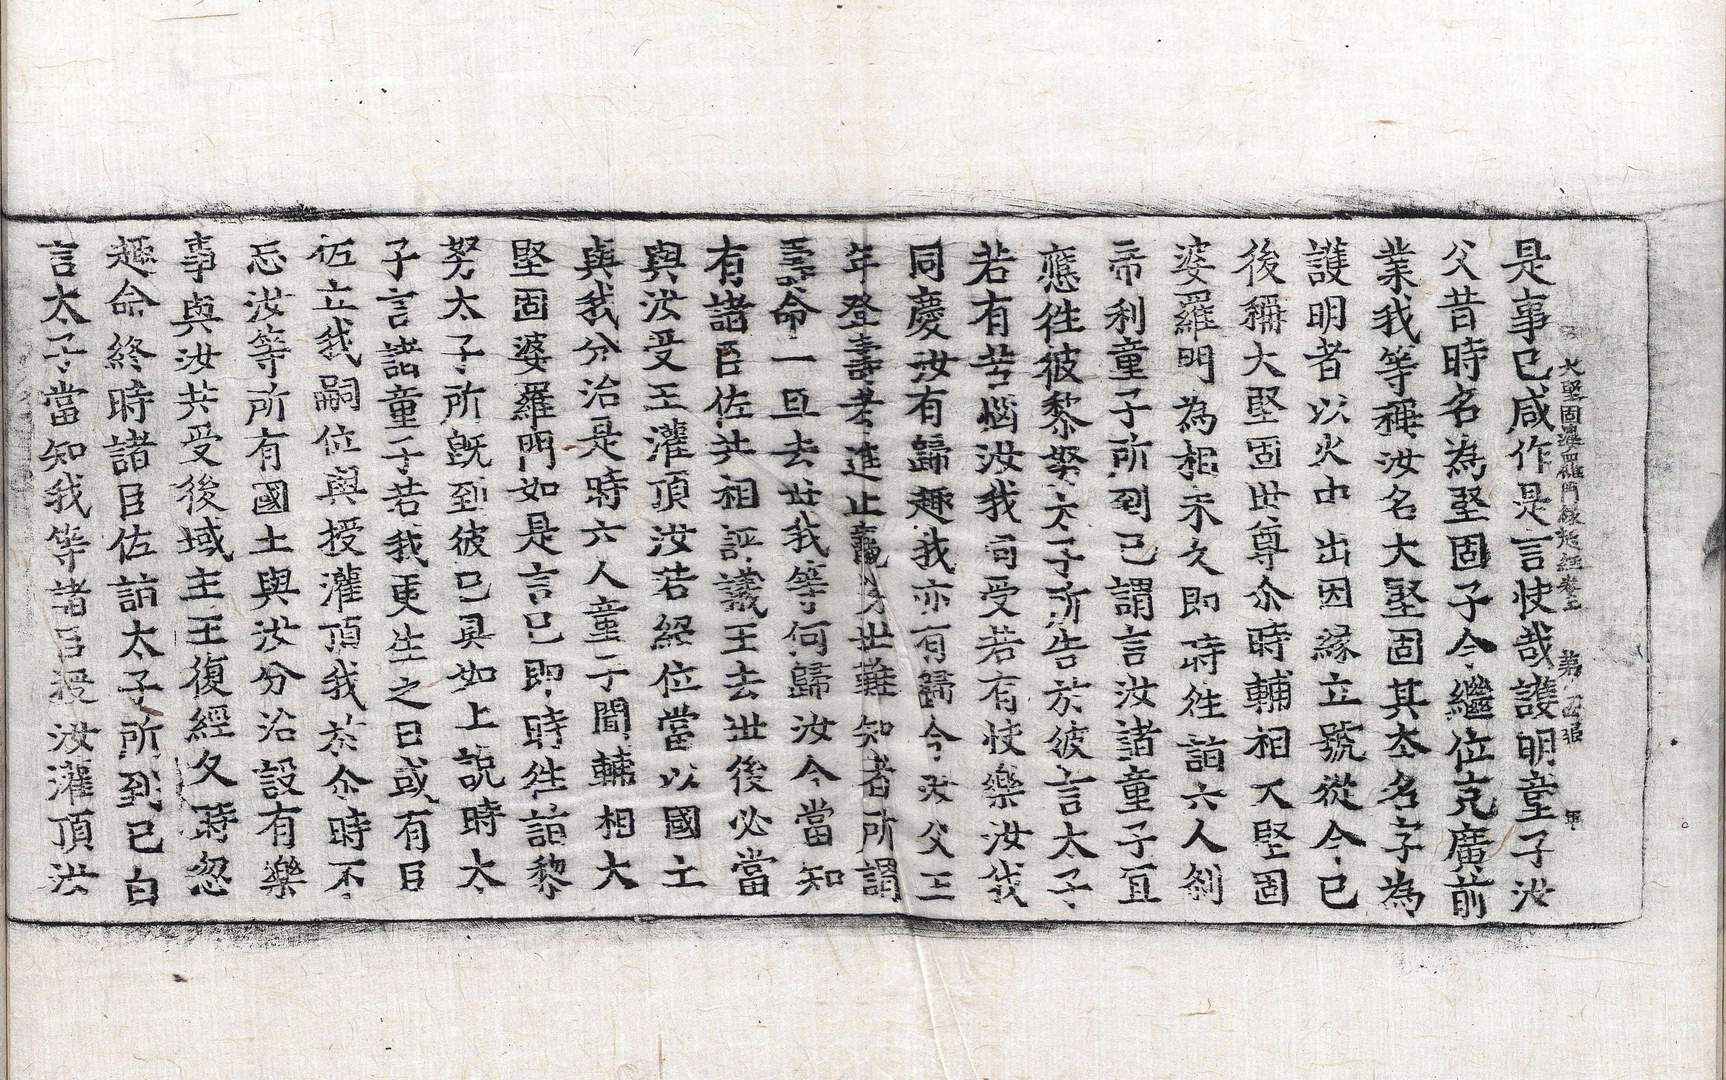 大堅固婆羅門緣起經卷上 第四張 甲
是事已咸作是言快哉護明童子汝
父昔時名為堅固子今繼位克廣前
業我等稱汝名大堅固其本名字為
護明者以火中出因緣立號從今已
後稱大堅固世尊尒時輔相大堅固
婆羅明為相未久即時往詣六人剎
帝利童子所到已謂言汝諸童子宜
應往彼黎努太子所告於彼言太子
若有苦惱汝我同受若有快樂汝我
同慶汝有歸趣我亦有歸今汝父王
年登壽考進止難知者所謂
壽命一旦去世我等何歸汝今當知
有諸臣佐共相評議王去世後必當
與汝受王灌頂汝若紹位當以國土
與我分治是時六人童子聞輔相大
堅固婆羅門如是言已即時往詣黎
努太子所旣到彼已具如上說時太
子言諸童子若我更生之日或有臣
佐立我嗣位與授灌頂我於尒時不
忘汝等所有國土與汝分治設有樂
事與汝共受後域主王復經久時忽
趣命終時諸臣佐詣太子所到已白
言太子當知我等諸臣授汝灌頂汝